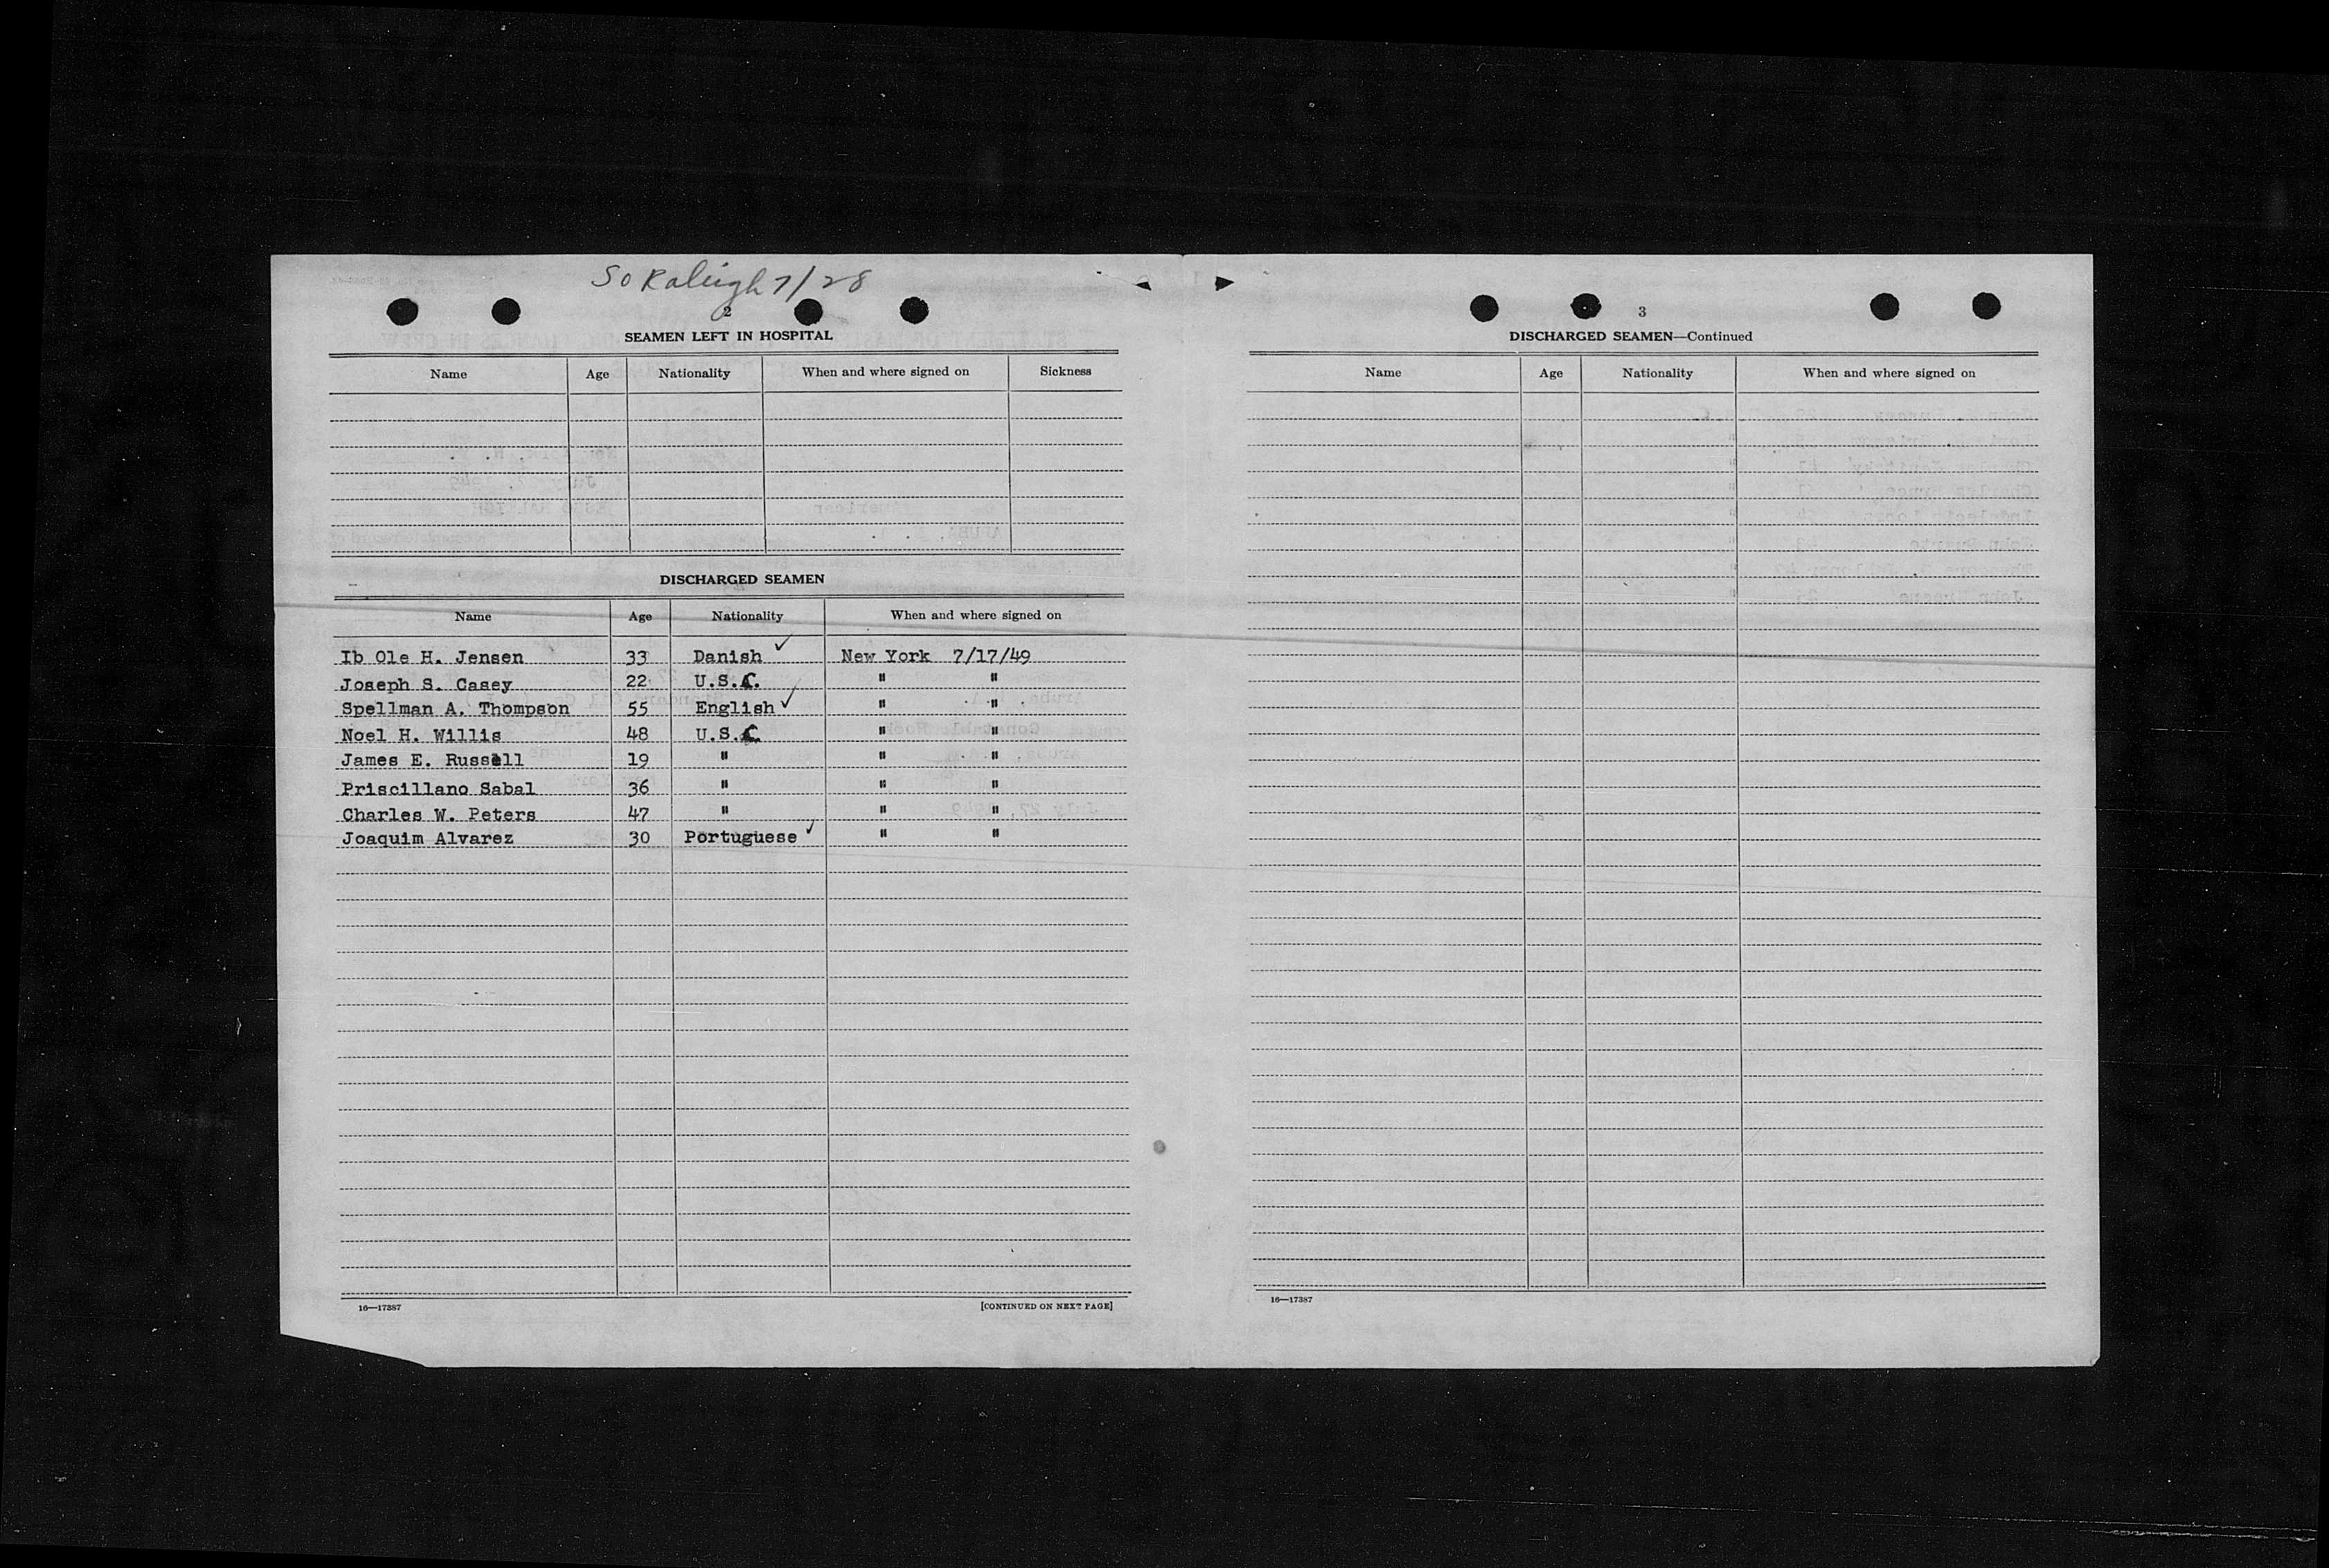 So Raleigh 7/28
2
SEAMEN LEFT IN HOSPITAL
Name Age Nationality When and where signed on Sickness
DISCHARGED SEAMEN
Name Age Nationality When and where signed on
Ib Ole H. Jensen 33 Danish ✓ New York 7/17/49
Joseph S. Casey 22 U.S.C. " "
Spellman A. Thompson 55 English ✓ " "
Noel H. Willis 48 U.S.C. " "
James E. Russell 19 " " "
Priscillano Sabal 36 " " "
Charles W. Peters 47 " " "
Joaquim Alvarez 30 Portuguese ✓ " "
16—17387 [CONTINUED ON NEXT PAGE]
3
DISCHARGED SEAMEN—Continued
Name Age Nationality When and where signed on
16—17387